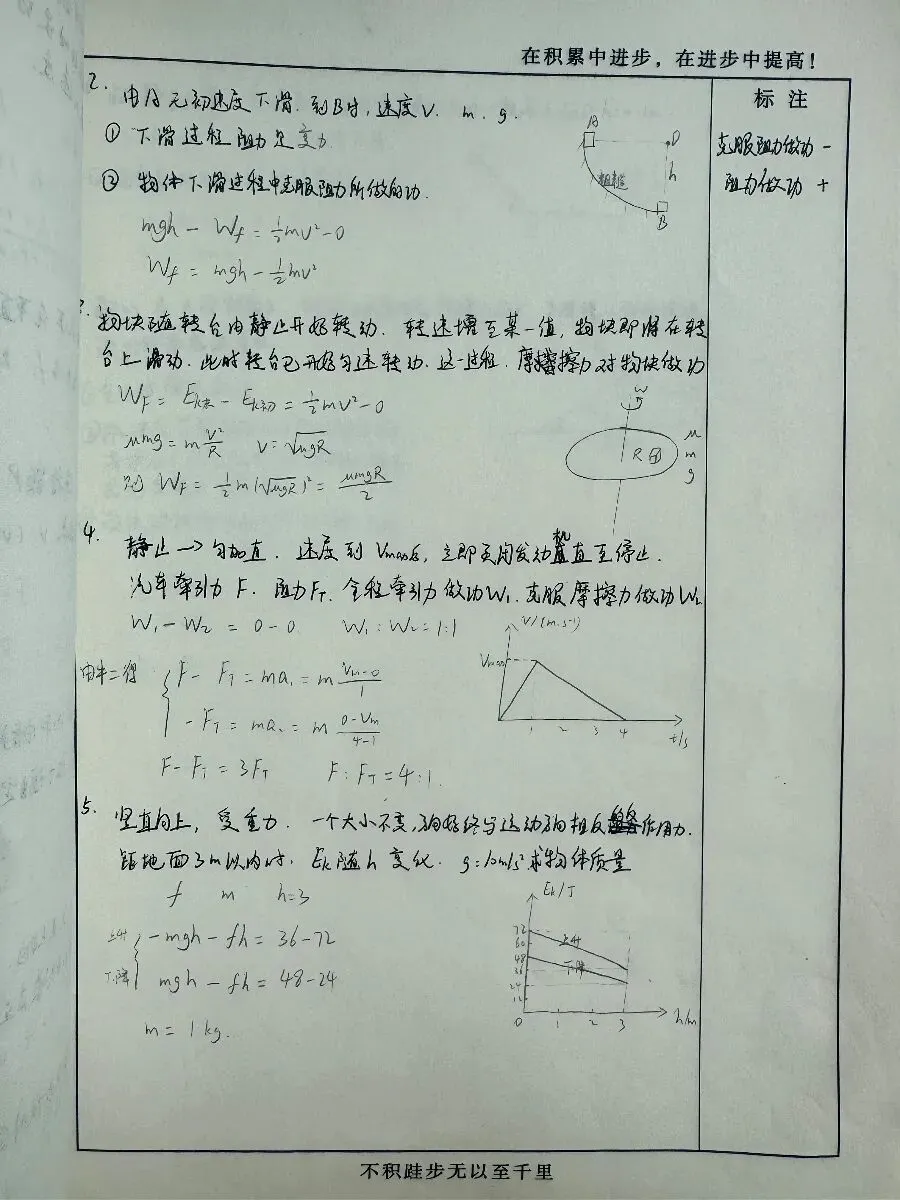 在积累中进步，在进步中提高！
标 注
克服阻力做功 -
阻力做功 +
2. 由A无初速度下滑.到B时，速度V. m. g.
① 下滑过程阻力是变力
② 物体下滑过程中克服阻力所做的功.
mgh - Wf = 1/2 mv² - 0
Wf = mgh - 1/2 mv²
A
O
h
粗糙
B
物块随转台由静止开始转动. 转速增至某一值，物块即将在转
台上滑动.此时转台已开始匀速转动.这一过程.摩擦力对物块做功
WF = Ek末 - Ek初 = 1/2 mv² - 0
μmg = m V²/R V = √μgR
则 WF = 1/2 m(√μgR)² = μmgR/2
W
R
μ
m
g
4. 静止→匀加直. 速度到Vmax后，立即关闭发动机直至停止.
汽车牵引力F. 阻力FT. 全程牵引力做功W₁.克服摩擦力做功W₂
W₁ - W₂ = 0 - 0 W₁:W₂ = 1:1
由牛二得 F - FT = ma₁ = m (Vm-0)/1
-FT = ma₂ = m (0-Vm)/(4-1)
F - FT = 3FT F:FT = 4:1.
V/(m.s⁻¹)
Vmax
1 2 3 4 t/s
5. 竖直向上，受重力. 一个大小不变，方向始终与运动方向相反作用力.
距地面3m以内时. Ek随h变化. g=10m/s²求物体质量
f m h=3
上升 -mgh - fh = 36 - 72
下降 mgh - fh = 48 - 24
m = 1kg.
Ek/J
72
60
48
36
24
12
上升
下降
0 1 2 3 h/m
不积跬步无以至千里